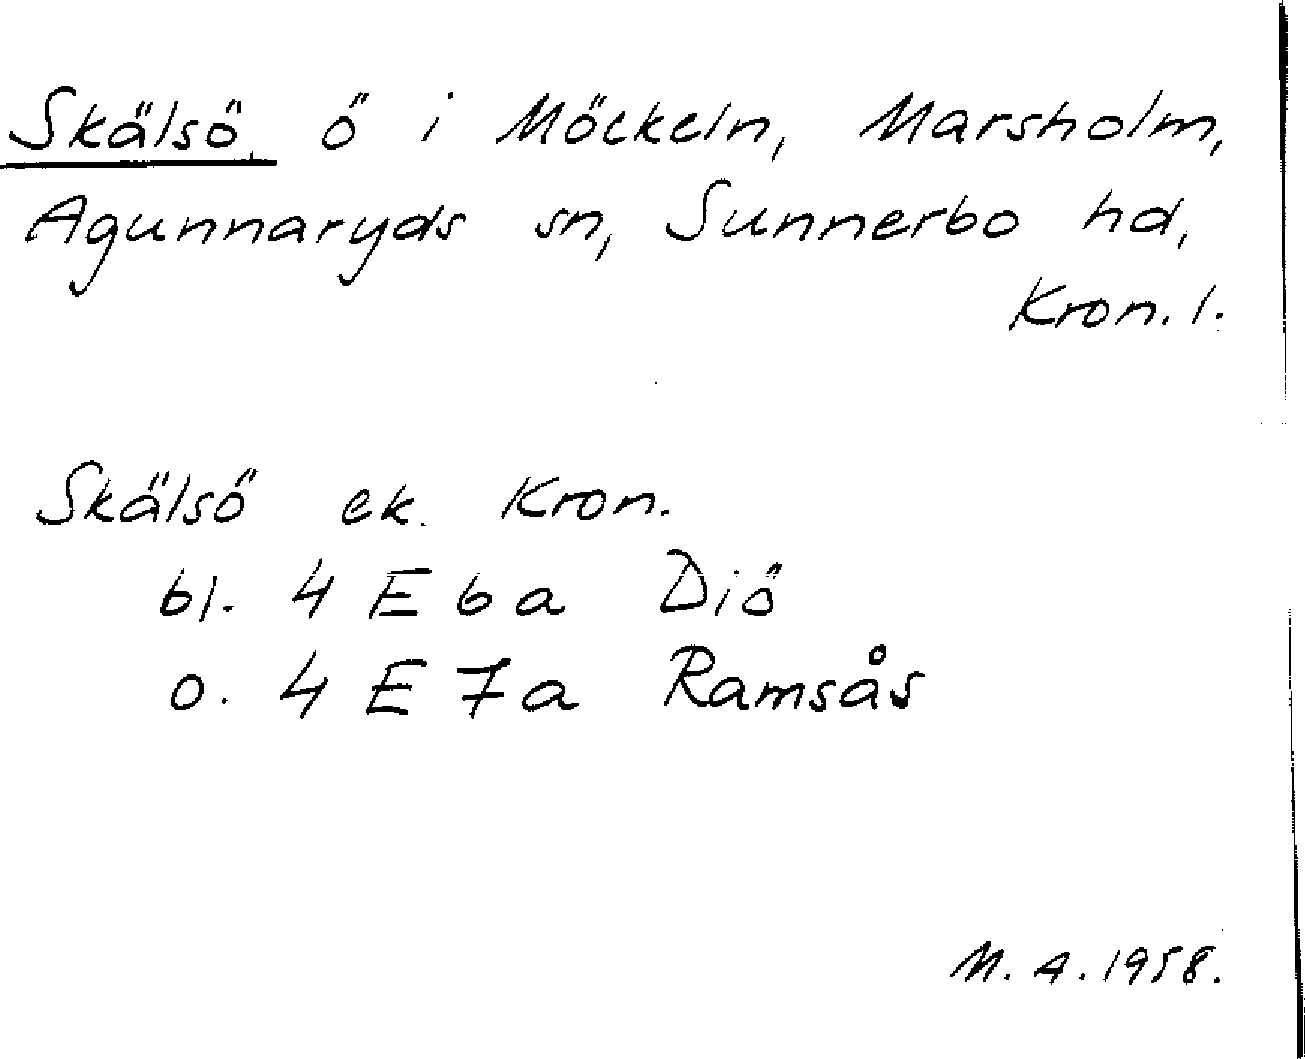 Skälsö, ö i Möckeln, Marsholm,
Agunnaryds sn, Sunnerbo hd,
Kron. l.
Skälsö ek. Kron.
bl. 4 E 6 a Diö
o. 4 E 7 a Ramsås
M. A. 1958.